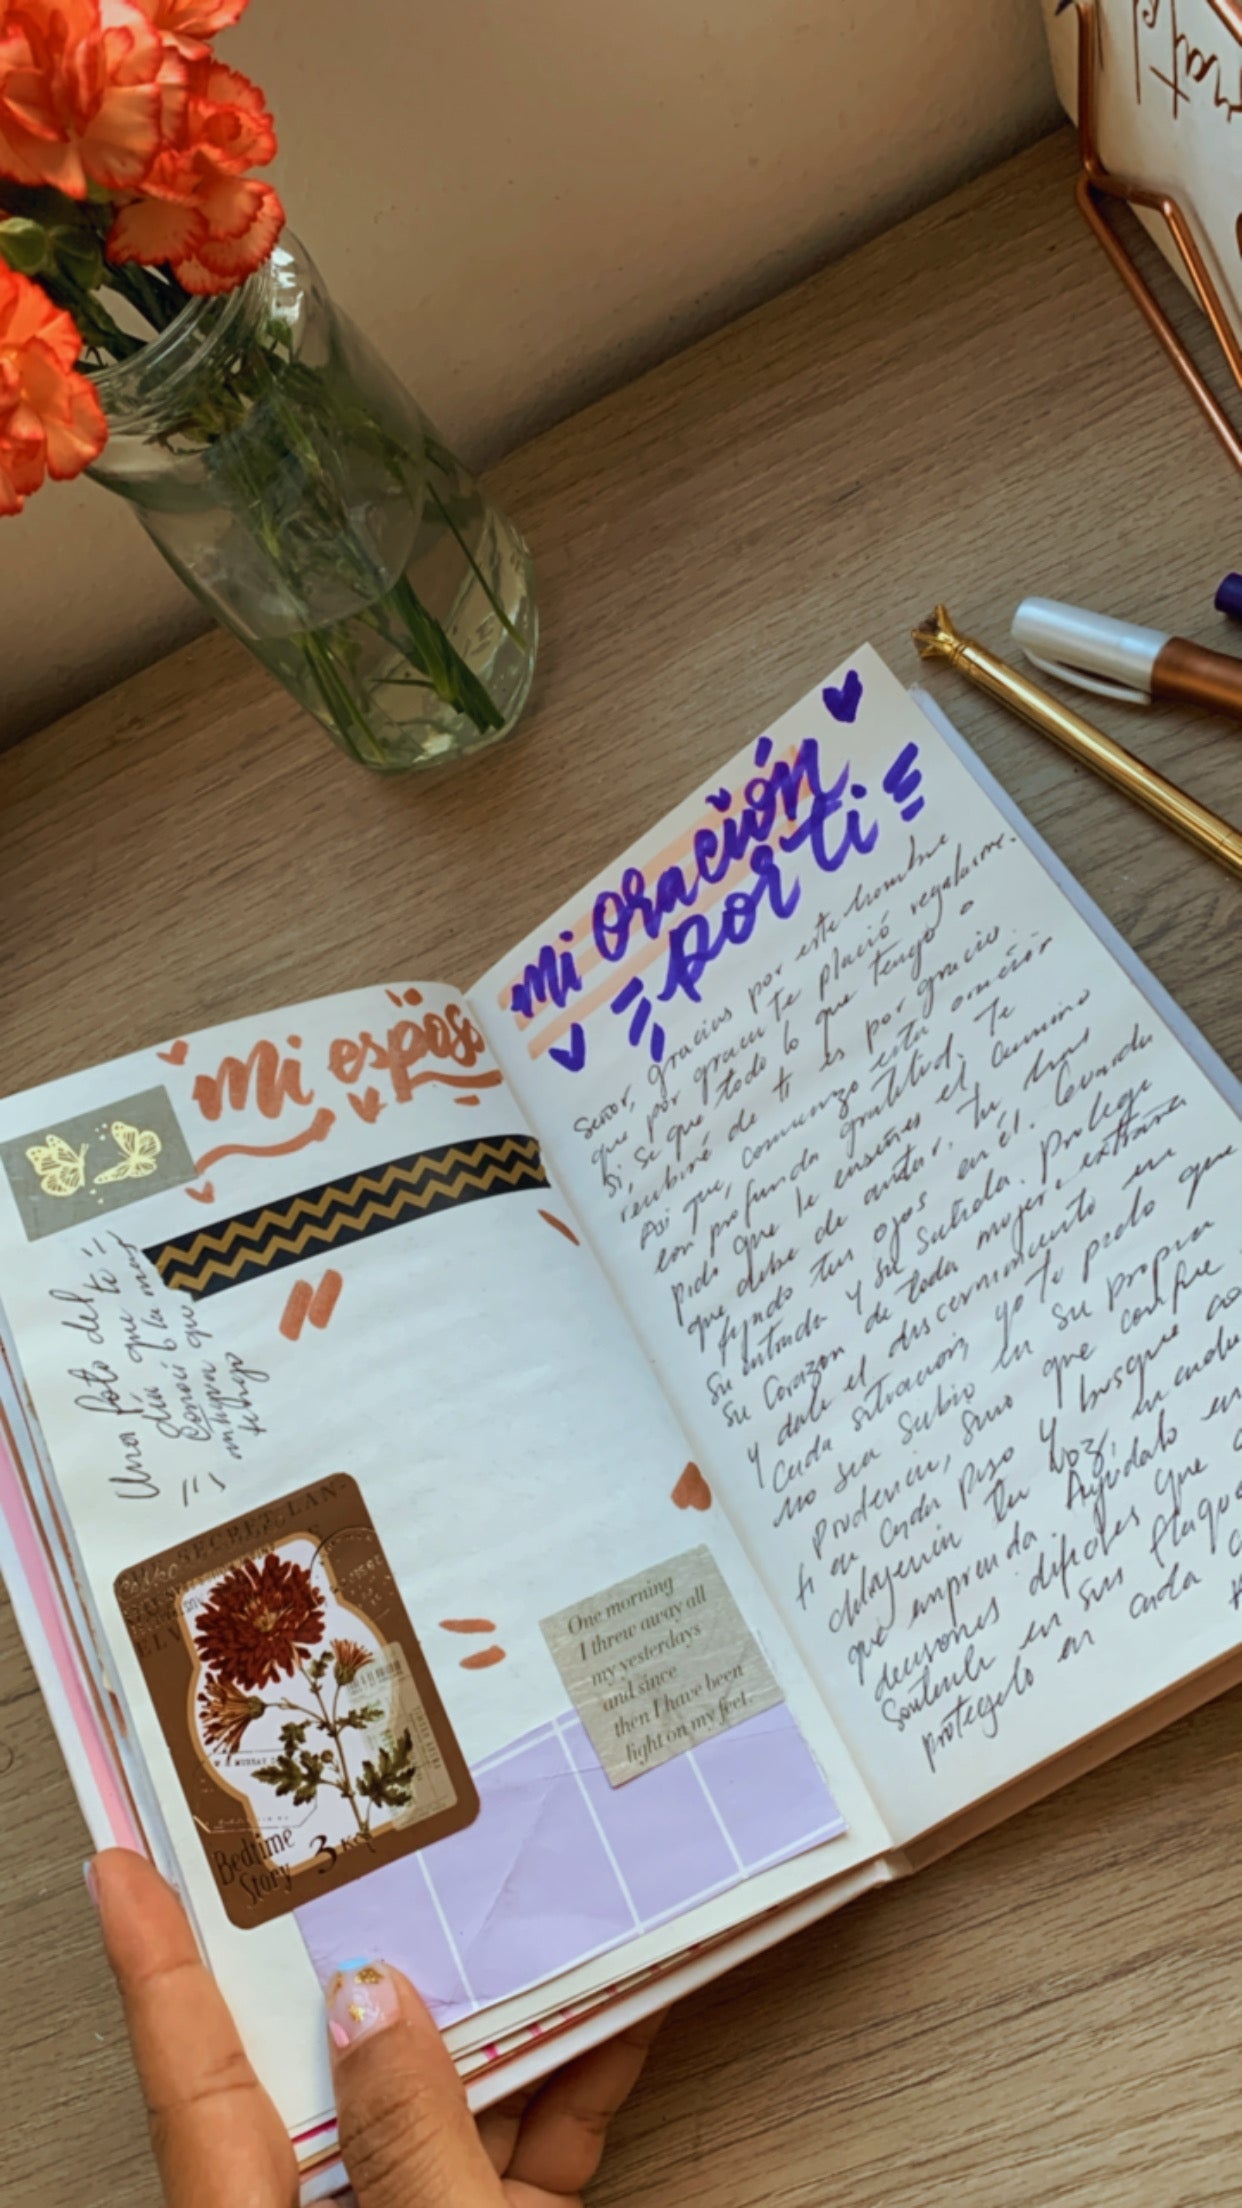 Mi esposo
Una foto del
día que te
Conocí o la más
antigua que
tengo
SECRET LAN-
Bedtime
Story
3
One morning
I threw away all
my yesterdays
and since
then I have been
light on my feet.
mi oración
por ti
Señor, gracias por este hombre
que por gracia te plació regalarme.
Si, se que todo lo que tengo o
recibiré de ti es por gracia.
Así que, comienzo esta oración
con profunda gratitud. Te
pido que le enseñes el camino
que debe de andar. Tu has
fijado tus ojos en él. Guarda
su entrada y su salida. Protege
su corazón de toda mujer extraña
y dale el discernimiento en
cada situación, yo te pido que
no sea sabio en su propia
prudencia, sino que confíe
en cada paso y busque
tu voz, en cada
que emprenda. Ayúdalo en
decisiones difíciles que
Sostenle en sus
protégelo en cada